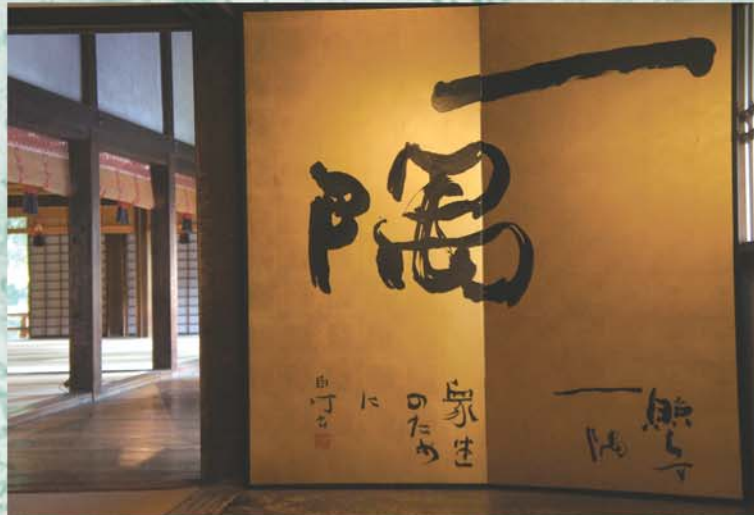 一隅
照于
一隅
衆生
のため
に